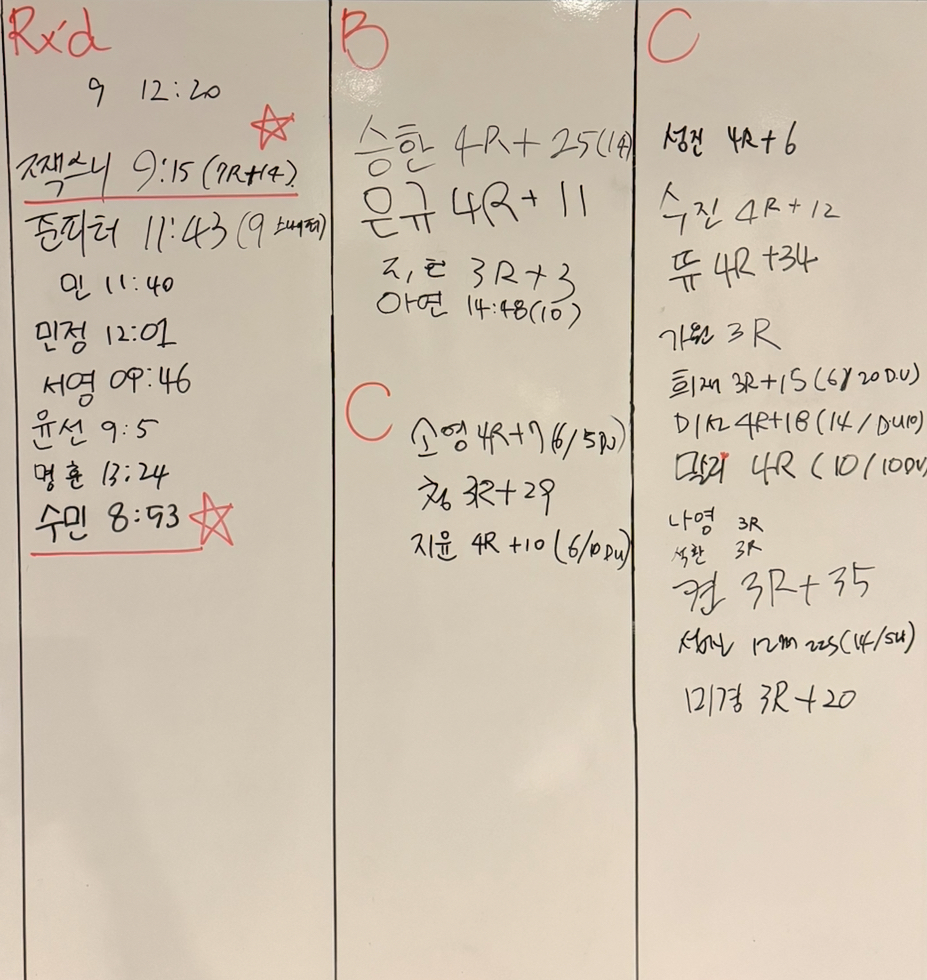 Rx'd
9 12:20
쯔잭스니 9:15 (7R+14)
준피터 11:43 (9 스내터)
민 11:40
민정 12:01
서영 09:46
윤선 9:5
명훈 13:24
수민 8:53
B
승한 4R+25(14)
은규 4R+11
3R+3
아연 14:48(10)
C
소영 4R+7(6/5DU)
청 3R+29
지윤 4R+10(6/10DU)
C
성진 4R+6
수진 4R+12
뜌 4R+34
가원 3R
희재 3R+15(6/20DU)
미선 4R+18(14/DU10)
말리 4R(10/10DU
나영 3R
석환 3R
켠 3R+35
성신 12m 22s(14/5U)
미경 3R+20